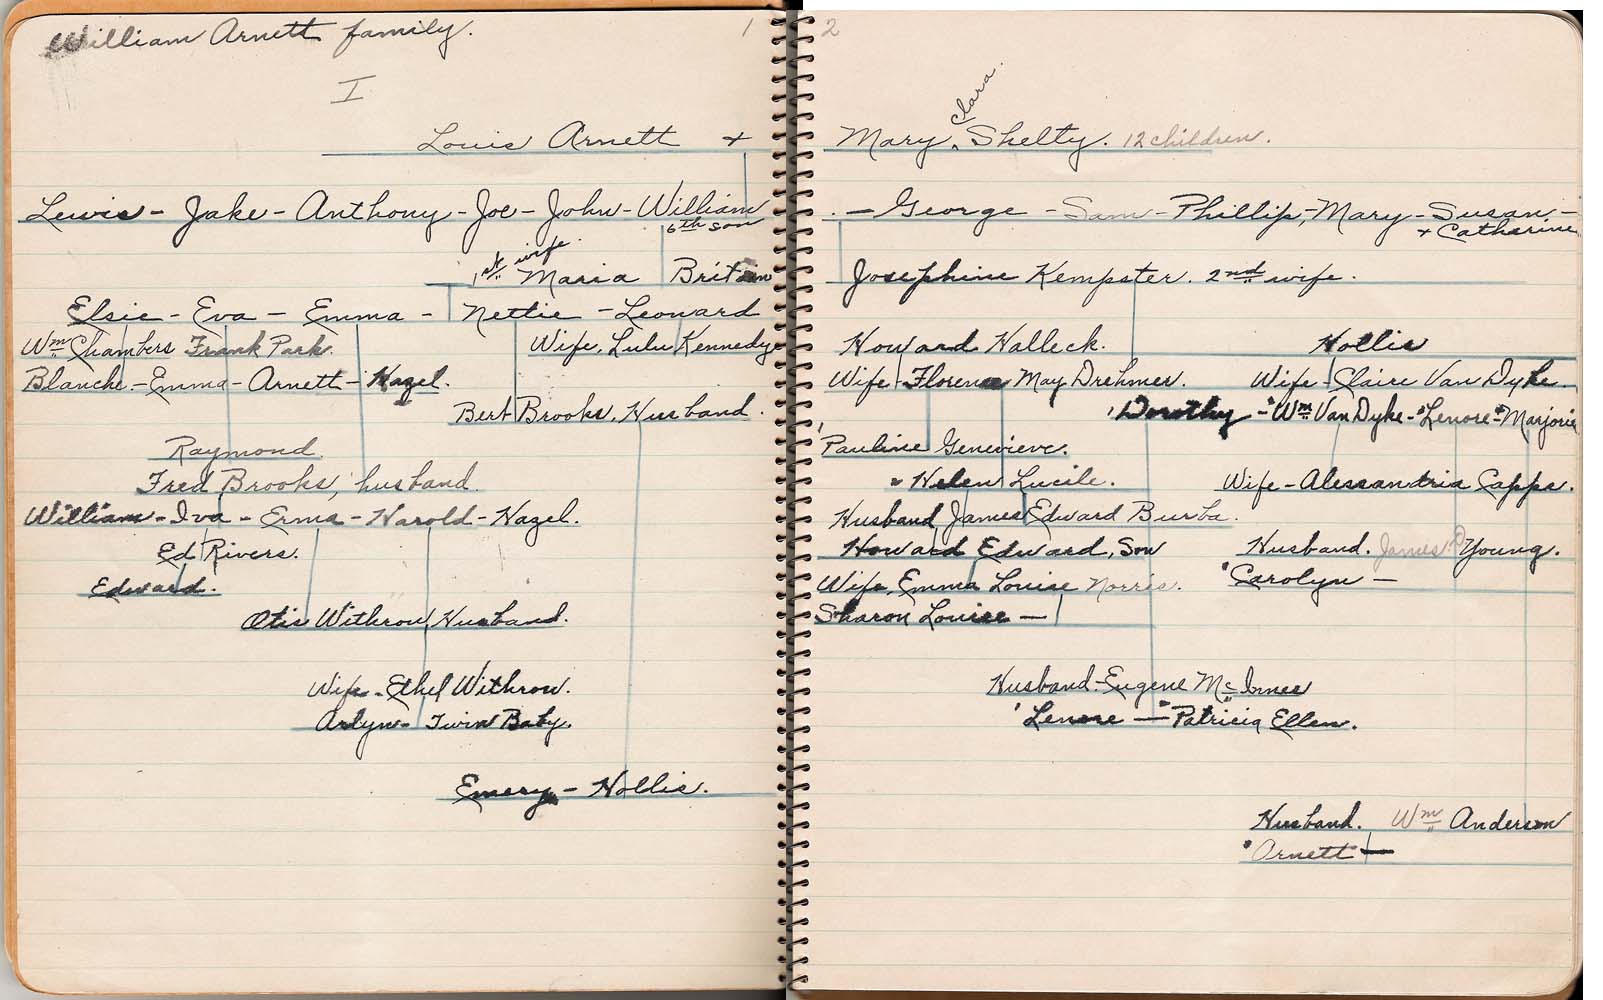 William Arnett family. 1
I
Louis Arnett +
Lewis - Jake - Anthony - Joe - John - William
6th son
1st wife.
Maria Britian
Elsie - Eva - Emma - Nettie - Leonard
Wm Chambers Frank Park. Wife, Lulu Kennedye
Blanche - Emma - Arnett - Hazel.
Bert Brooks, Husband.
Raymond.
Fred Brooks, husband.
William - Iva - Erma - Harold - Hazel.
Ed Rivers.
Edward.
Otis Withrow, Husband.
Wife - Ethel Withrow.
Arlyn - Twin Baby.
Emery - Hollis.
2
Clara
Mary Shelty. 12 children.
- George - Sam - Phillip, - Mary - Susan -
+ Catharine
Josephine Kempster. 2nd wife.
Howard Halleck. Hollis
Wife - Florence May Drehmer. Wife - Claire Van Dyke.
' Dorothy - " Wm Van Dyke - Lenore - Marjorie
' Pauline Genevieve.
" Helen Lucile. Wife - Alessandria Capps.
Husband James Edward Burba.
Howard Edward, Son Husband. James D Young.
Wife, Emma Louise Norris. ' Carolyn -
Sharon Louise -
Husband - Eugene Mc Innes
' Lenore - " Patricia Ellen.
Husband. Wm Anderson
' Arnett -